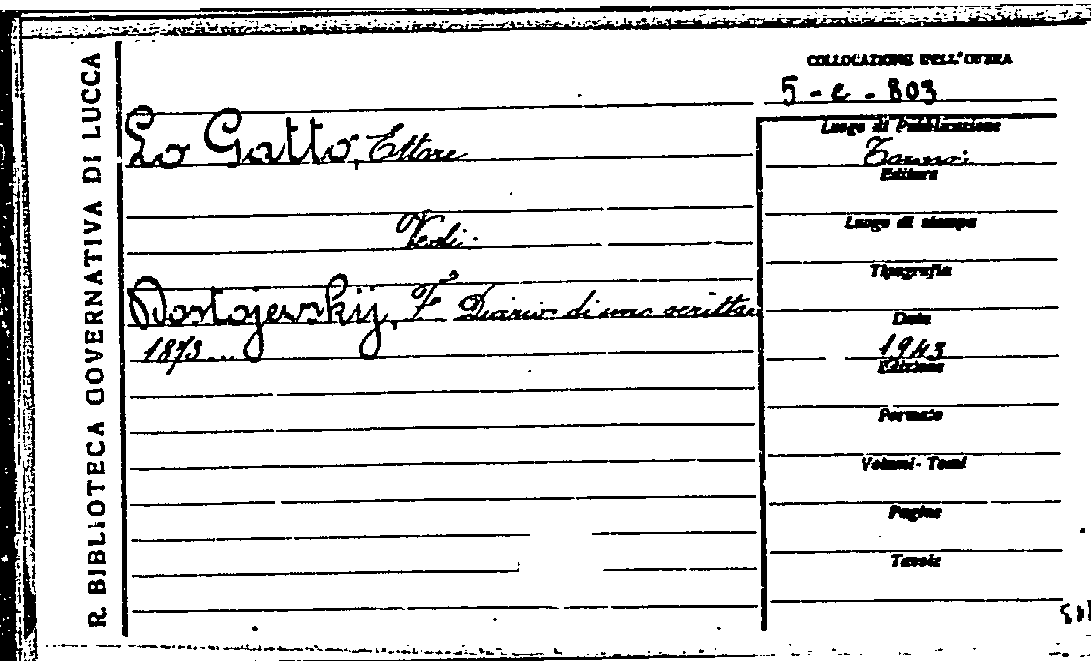 R. BIBLIOTECA GOVERNATIVA DI LUCCA
COLLOCAZIONE DELL'OPERA
5 - e - 803
Lo Gatto, Ettore
Vedi:
Dostojevskij, F. Diario di uno scrittore
1873...
Luogo di Pubblicazione
Editore
Luogo di stampa
Tipografia
Data
1943
Edizione
Formato
Volumi - Tomi
Pagine
Tavole